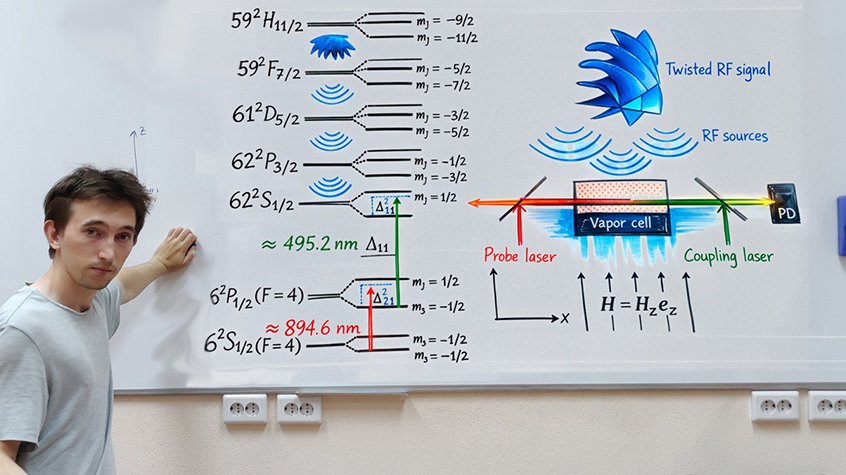 59²H₁₁/₂
mⱼ = −9/2
mⱼ = −11/2
59²F₇/₂
mⱼ = −5/2
mⱼ = −7/2
61²D₅/₂
mⱼ = −3/2
mⱼ = −5/2
62²P₃/₂
mⱼ = −1/2
mⱼ = −3/2
62²S₁/₂
Δ²₁₁
mⱼ = 1/2
≈ 495.2 nm Δ₁₁
6²P₁/₂(F = 4)
Δ²₂₁
mⱼ = 1/2
m₃ = −1/2
≈ 894.6 nm
6²S₁/₂(F = 4)
m₃ = −1/2
m₃ = −1/2
z
Twisted RF signal
RF sources
Vapor cell
PD
Probe laser
Coupling laser
H = H_z e_z
x